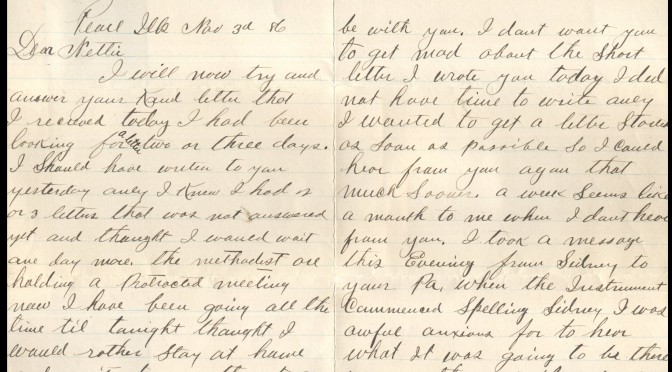 Pearl Ills Nov 3d 86
Dear Nettie
I will now try and
answer your Kind letter that
I received today I had been
looking for a letter two or three days.
I Should have writen to you
yesterday oney I Knew I had 2
or 3 letters that was not answered
yet and thought I would wait
one day more. the methodist are
holding a Protracted meeting
now I have been going all the
time til tonight thought I
would rather Stay at home
be with you. I dont want you
to get mad about the Short
letter I wrote you today I did
not have time to write oney
I wanted to get a letter Started
as Soon as possible So I could
hear from you again that
much Sooner. a week Seems like
a month to me when I dont hear
from you. I took a message
this Evening from Sidney to
your Pa, when the Instrument
Commenced Spelling Sidney I was
awful anxious for to hear
what It was going to be there